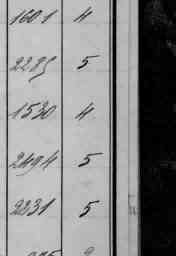 1601 4
2285 5
1530 4
2494 5
2231 5